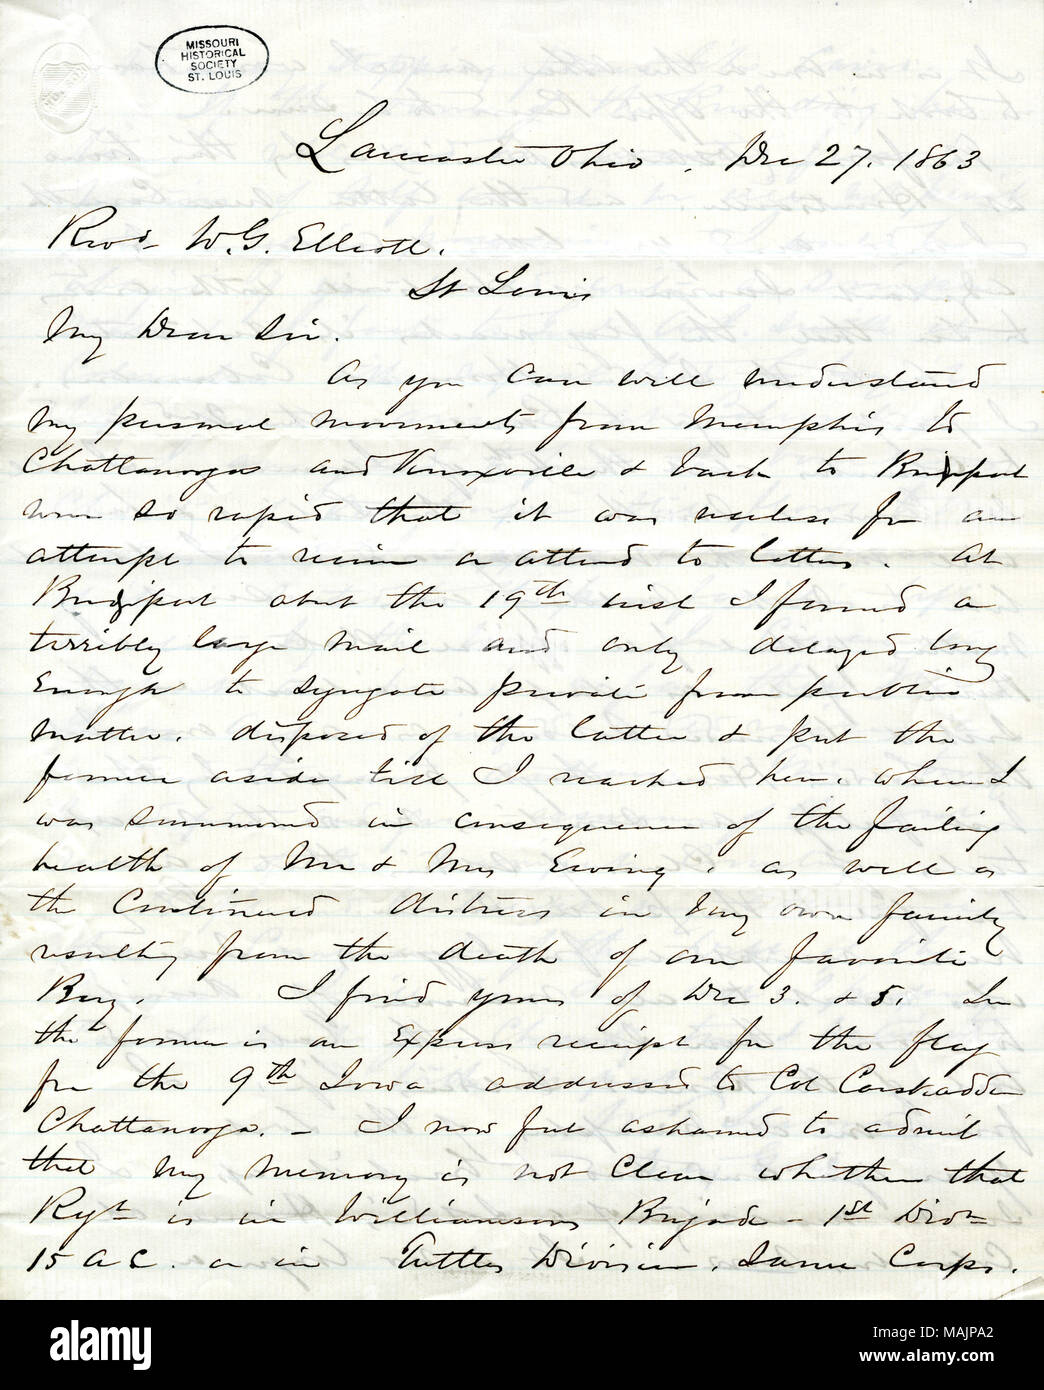 MISSOURI
HISTORICAL
SOCIETY
ST. LOUIS
Lancaster Ohio, Dec 27, 1863
Revd W. G. Elliott.
St Louis
My Dear Sir.
As you can well understand
my personal movements from Memphis to
Chattanooga and Knoxville & back to Bridgeport
were so rapid that it was useless for an
attempt to receive or attend to letters. At
Bridgeport about the 19th inst I found a
terribly large mail and only delayed long
Enough to segregate private from public
matter, disposed of the latter & put the
former aside till I reached here, where I
was summoned in consequence of the failing
health of Mr & Mrs Ewing, as well as
the Continued distress in my own family
resulting from the death of our favorite
Boy. I find yours of Dec 3. & 5. In
the former is an Express receipt for the flag
for the 9th Iowa addressed to Col Carskadden
Chattanooga. – I now feel ashamed to admit
that my memory is not Clear whether that
Regt is in Williamsons Brigade – 1st Divn
15 A C. or in Tuttles Division, Same Corps.
alamy
Image ID: MAJPA2
www.alamy.com